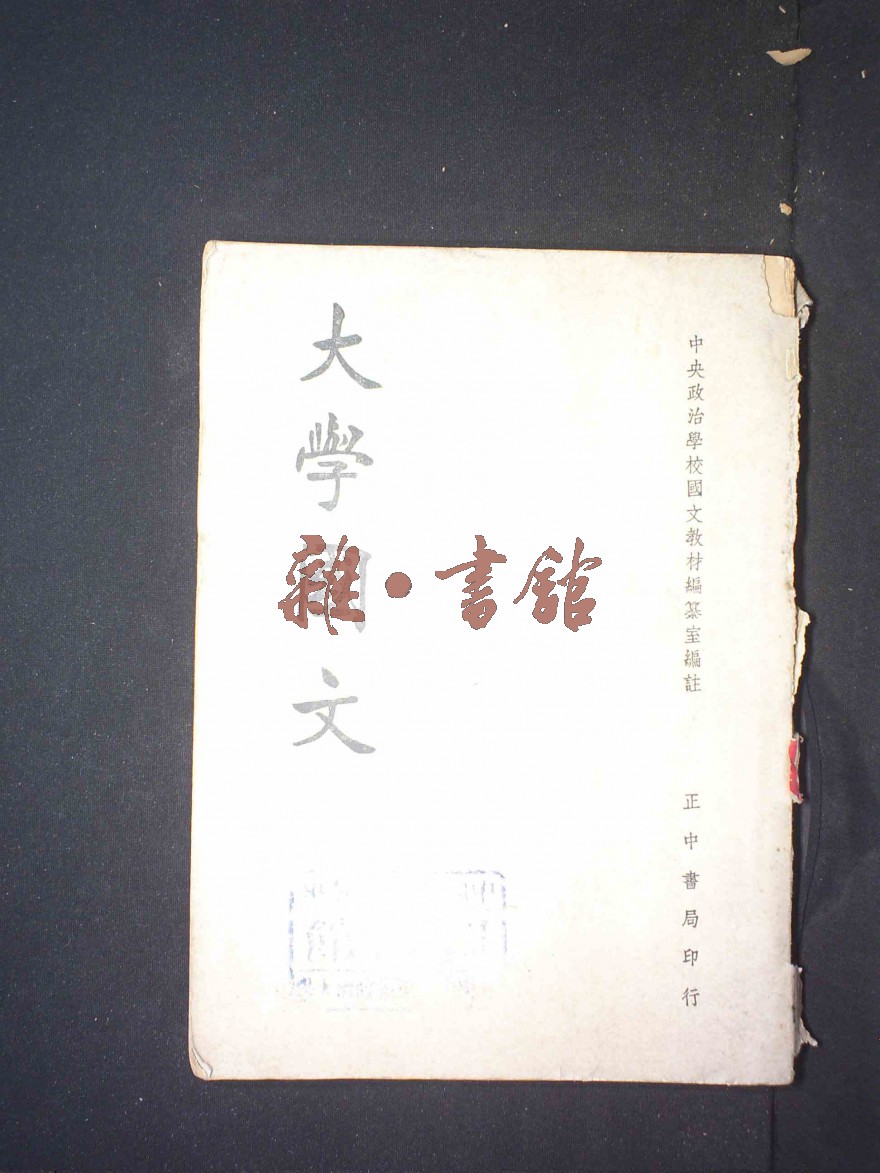 中央政治學校國文教材編纂室編註
正中書局印行
大學國文
雜·書館